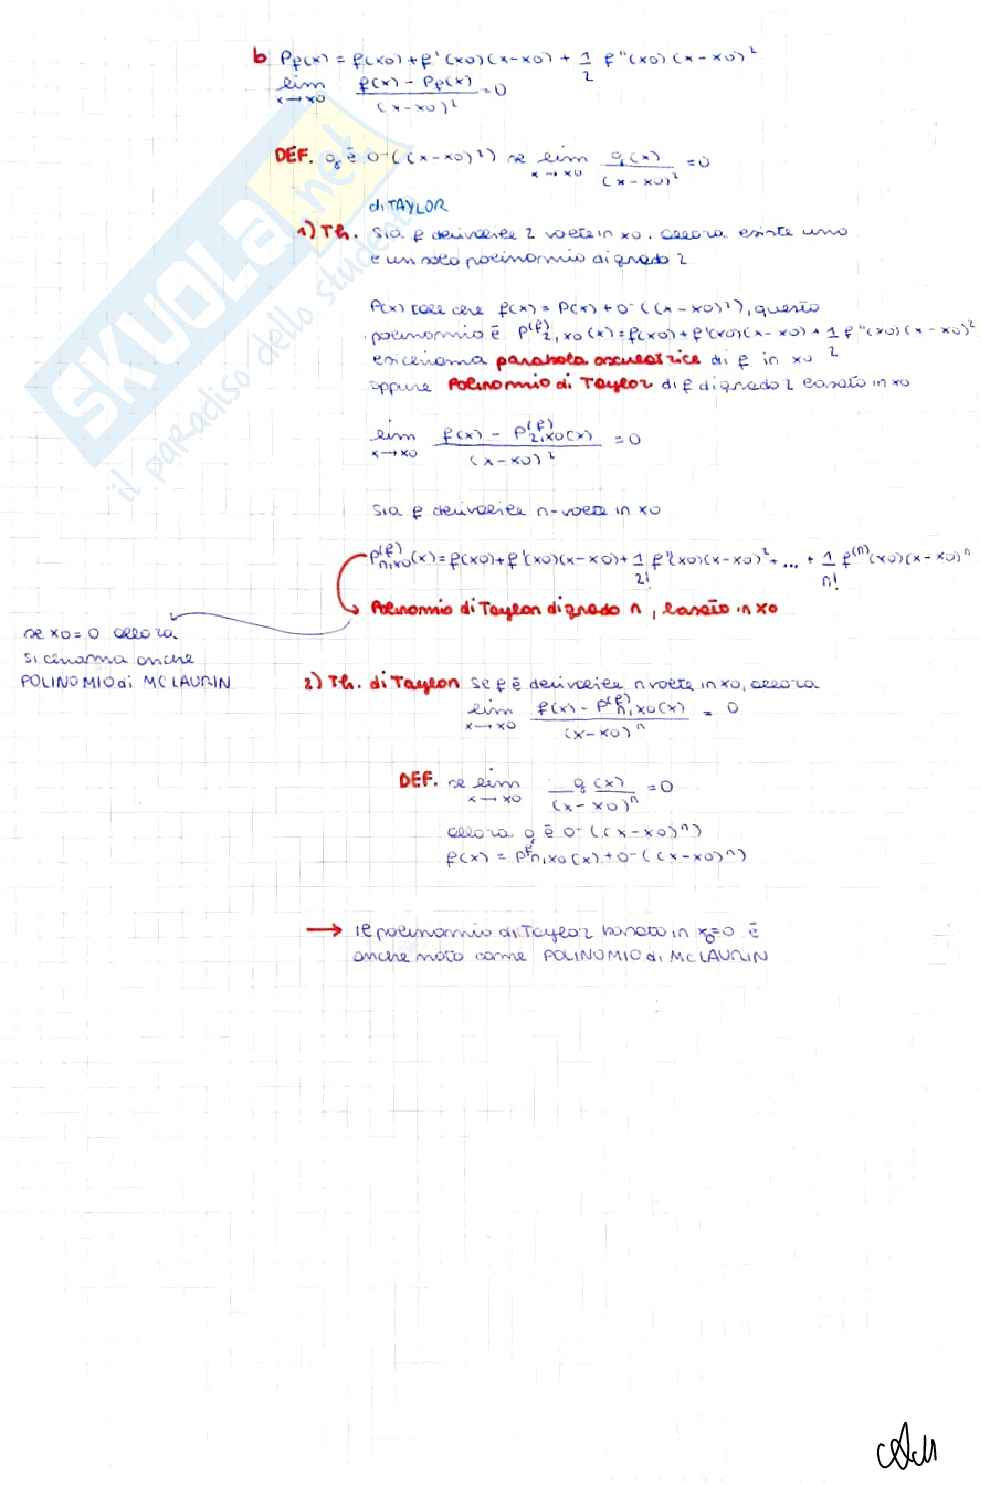 b Pf(x) = f(x0) + f'(x0)(x-x0) + 1/2 f''(x0)(x-x0)²
lim x→x0 (f(x) - Pf(x))/(x-x0)² = 0
DEF. g è o((x-x0)²) se lim x→x0 g(x)/(x-x0)² = 0
di TAYLOR
1) Th. Sia f derivabile 2 volte in x0. allora esiste uno
e un solo polinomio di grado 2
P(x) tale che f(x) = P(x) + o((x-x0)²), questo
polinomio è P^(f)2,x0(x) = f(x0) + f'(x0)(x-x0) + 1/2 f''(x0)(x-x0)²
e si chiama parabola osculatrice di f in x0
oppure Polinomio di Taylor di f di grado 2 basato in x0
lim x→x0 (f(x) - P^(f)2,x0(x))/(x-x0)² = 0
Sia f derivabile n-volte in x0
P^(f)n,x0(x) = f(x0) + f'(x0)(x-x0) + 1/2! f''(x0)(x-x0)² + ... + 1/n! f^(n)(x0)(x-x0)^n
Polinomio di Taylor di grado n, basato in x0
se x0=0 allora
si chiama anche
POLINOMIO di MC LAURIN
2) Th. di Taylor Se f è derivabile n volte in x0, allora
lim x→x0 (f(x) - P^(f)n,x0(x))/(x-x0)^n = 0
DEF. se lim x→x0 g(x)/(x-x0)^n = 0
allora g è o((x-x0)^n)
f(x) = P^f n,x0(x) + o((x-x0)^n)
→ il polinomio di Taylor basato in x0=0 è
anche noto come POLINOMIO di MC LAURIN
SKUOLA.net
il paradiso dello studente